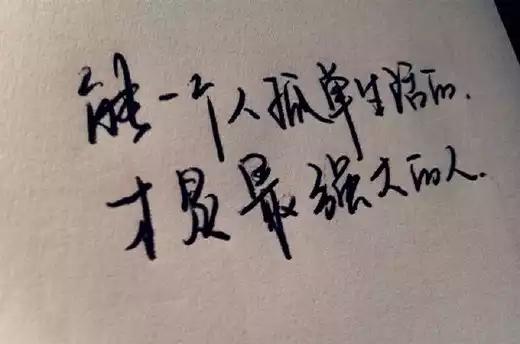 能一个人孤单生活的.
才是最强大的人.